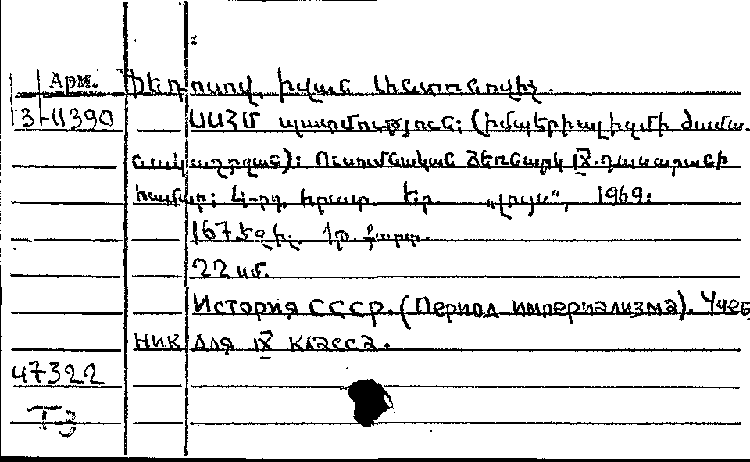 Арм. Ֆեդոսով, Իվան Անտոնովիչ.
3-11390 ՍՍՀՄ պատմություն: (Իմպերիալիզմի ժամա-
նակաշրջան): Ուսումնական ձեռնարկ IX դասարանի
համար: 4-րդ. հրատ. Եր. „Լույս“, 1969:
167 էջ իլ. 1թ. քարտ.
22 սմ.
История СССР. (Период империализма). Учеб
ник для IX класса.
47322
Т-3